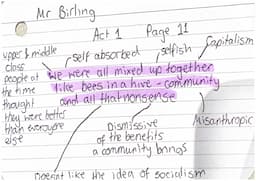 Mr Birling
Act 1 Page 11
Capitalism
self absorbed
selfish
upper & middle
class
people at
the time
thought
they were better
than everyone
else
we were all mixed up together
like bees in a hive - community
and all that nonsense
Misanthropic
Dismissive
of the benefits
a community brings
Doesn't like the idea of socialism